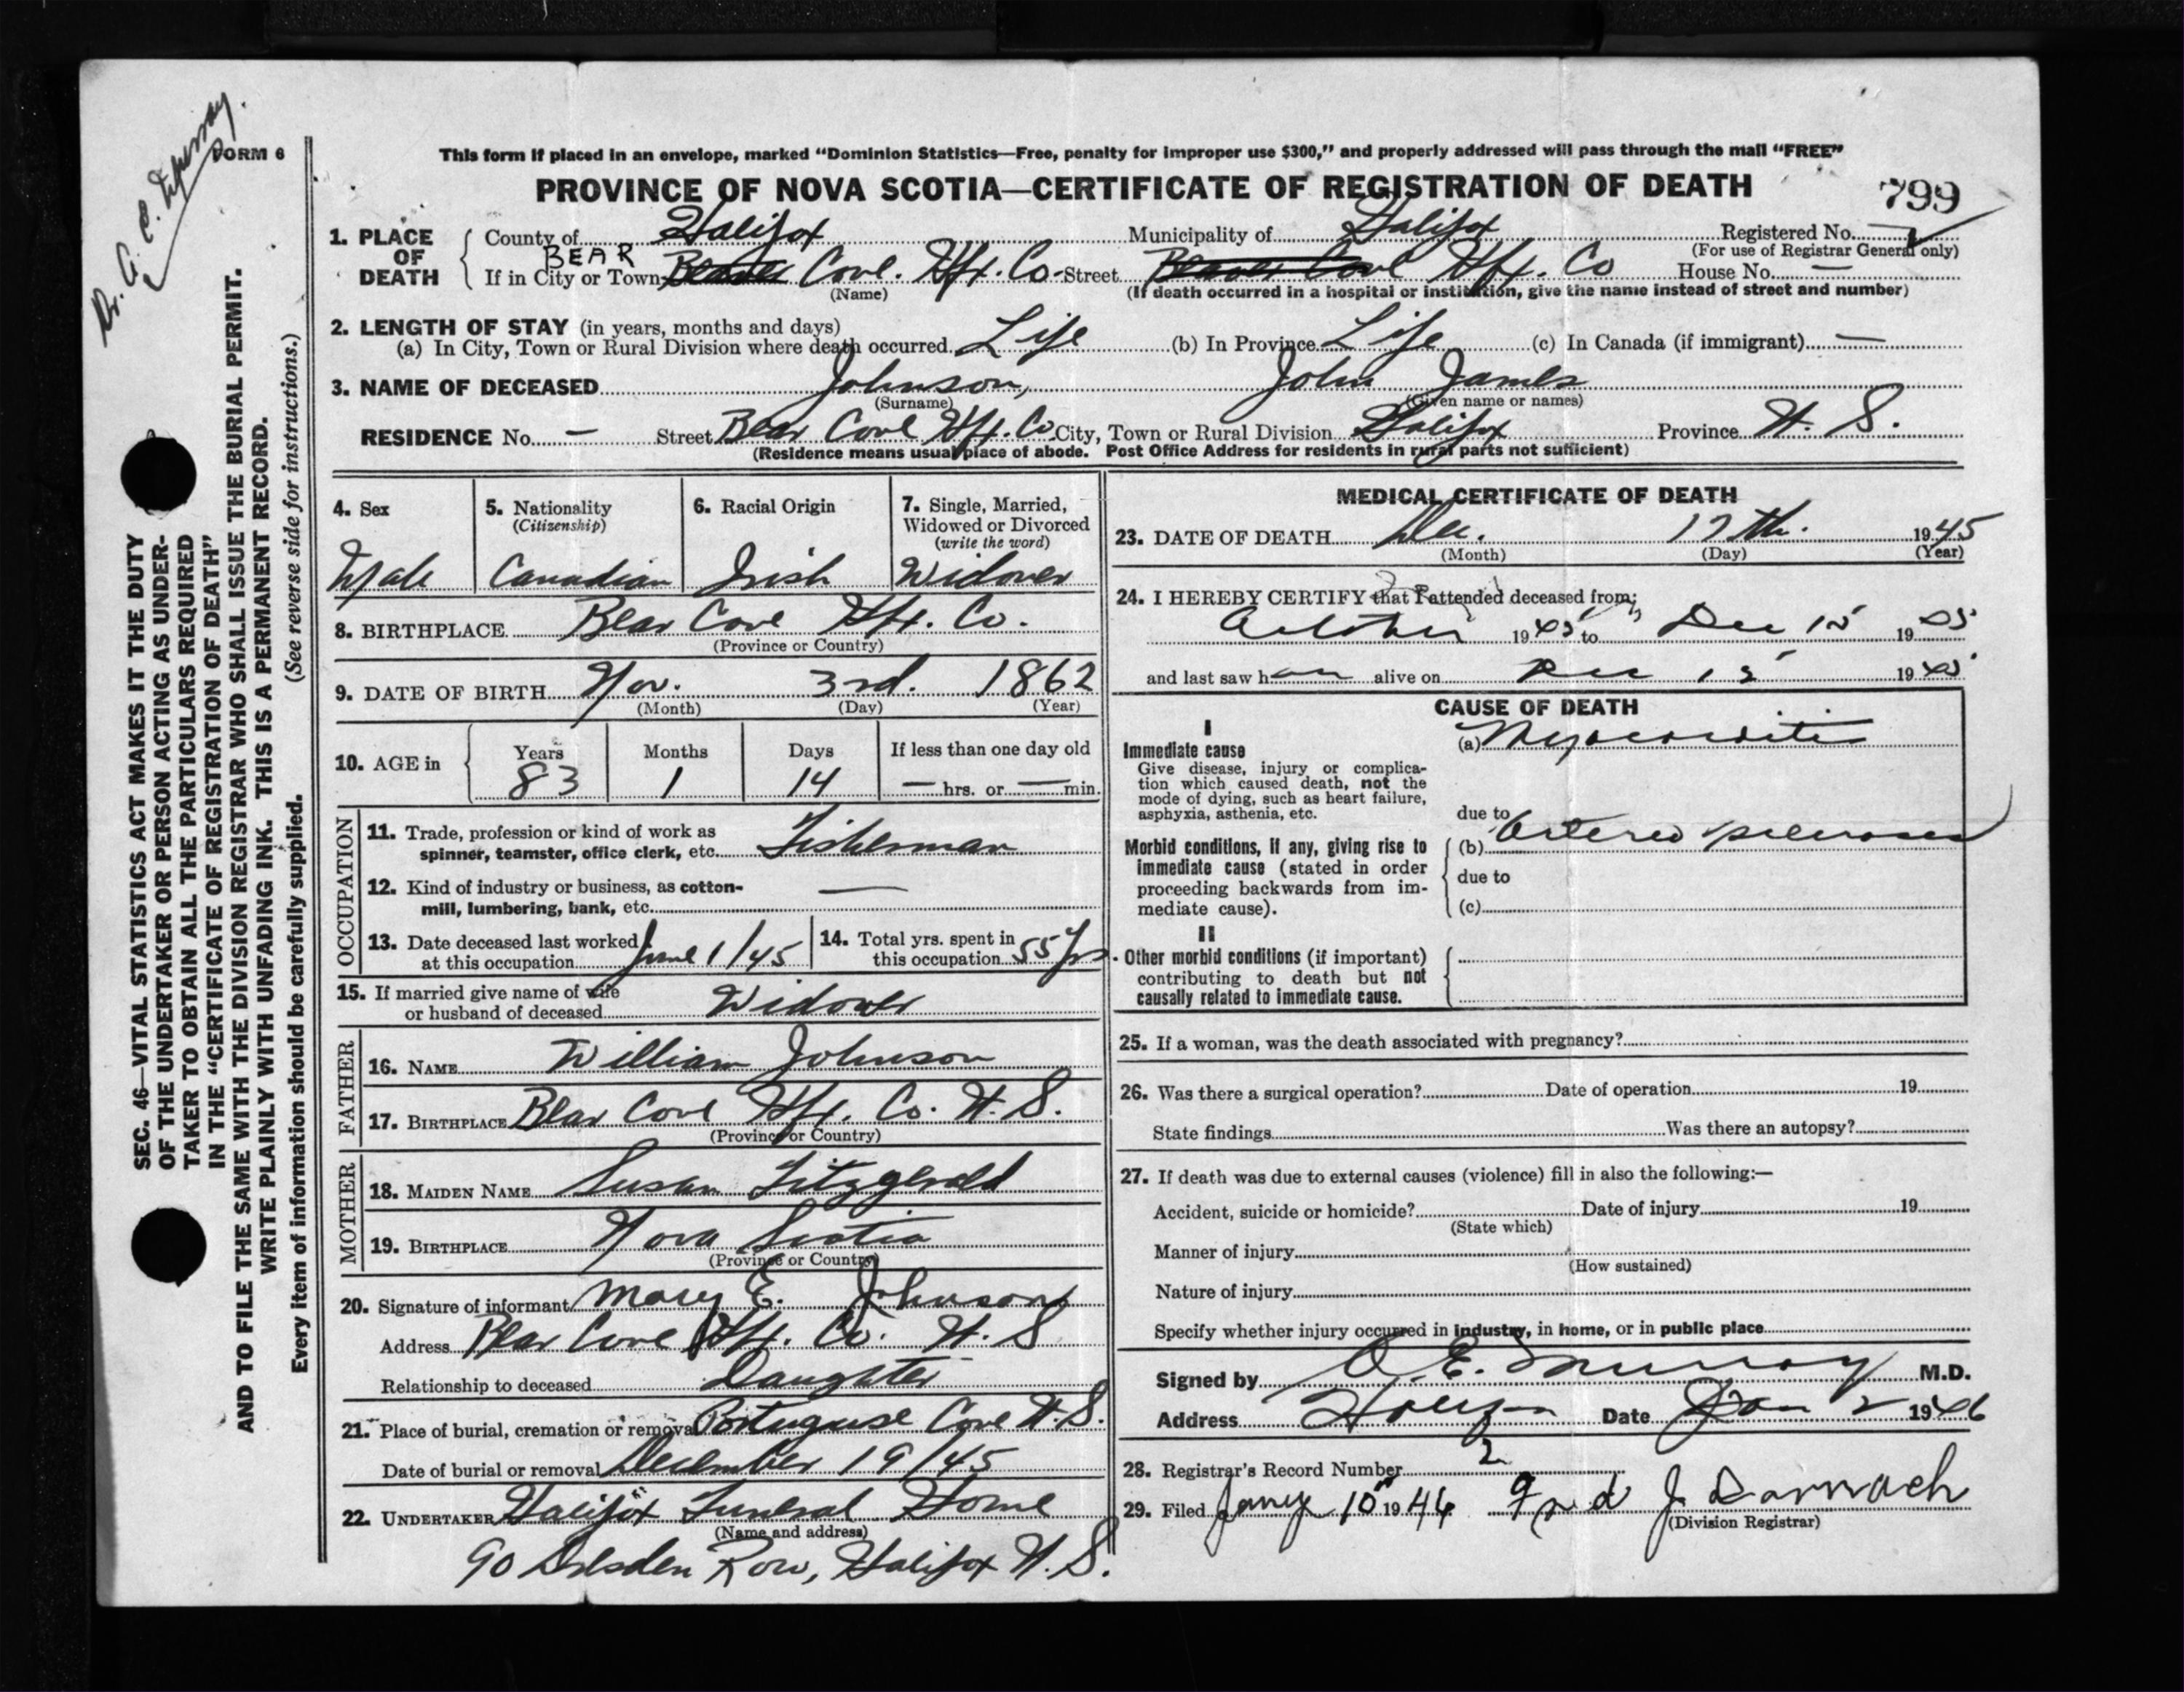 Dr. A. E. Murray.
FORM 6
SEC. 46—VITAL STATISTICS ACT MAKES IT THE DUTY
OF THE UNDERTAKER OR PERSON ACTING AS UNDER-
TAKER TO OBTAIN ALL THE PARTICULARS REQUIRED
IN THE "CERTIFICATE OF REGISTRATION OF DEATH"
AND TO FILE THE SAME WITH THE DIVISION REGISTRAR WHO SHALL ISSUE THE BURIAL PERMIT.
WRITE PLAINLY WITH UNFADING INK. THIS IS A PERMANENT RECORD.
Every item of information should be carefully supplied. (See reverse side for instructions.)
This form if placed in an envelope, marked "Dominion Statistics—Free, penalty for improper use $300," and properly addressed will pass through the mail "FREE"
PROVINCE OF NOVA SCOTIA—CERTIFICATE OF REGISTRATION OF DEATH 799
1. PLACE OF DEATH County of Halifax Municipality of Halifax Registered No.
(For use of Registrar General only)
BEAR
If in City or Town Beaver Cove. Hfx. Co. Street Beaver Cove Hfx. Co House No. —
(Name) (If death occurred in a hospital or institution, give the name instead of street and number)
2. LENGTH OF STAY (in years, months and days)
(a) In City, Town or Rural Division where death occurred Life (b) In Province Life (c) In Canada (if immigrant) —
3. NAME OF DECEASED Johnson, John James
(Surname) (Given name or names)
RESIDENCE No. — Street Bear Cove Hfx. Co. City, Town or Rural Division Halifax Province N. S.
(Residence means usual place of abode. Post Office Address for residents in rural parts not sufficient)
4. Sex 5. Nationality (Citizenship) 6. Racial Origin 7. Single, Married, Widowed or Divorced (write the word)
Male Canadian Irish Widower
8. BIRTHPLACE Bear Cove Hfx. Co.
(Province or Country)
9. DATE OF BIRTH Nov. 3rd. 1862
(Month) (Day) (Year)
10. AGE in Years Months Days If less than one day old
83 1 14 — hrs. or — min.
OCCUPATION
11. Trade, profession or kind of work as
spinner, teamster, office clerk, etc. Fisherman
12. Kind of industry or business, as cotton-
mill, lumbering, bank, etc. —
13. Date deceased last worked
at this occupation June 1/45
14. Total yrs. spent in
this occupation 55 yrs.
15. If married give name of wife
or husband of deceased Widower
FATHER
16. NAME William Johnson
17. BIRTHPLACE Bear Cove Hfx. Co. N. S.
(Province or Country)
MOTHER
18. MAIDEN NAME Susan Fitzgerald
19. BIRTHPLACE Nova Scotia
(Province or Country)
20. Signature of informant Mary E. Johnson
Address Bear Cove Hfx. Co. N. S
Relationship to deceased Daughter
21. Place of burial, cremation or removal Portuguese Cove N. S.
Date of burial or removal December 19/45
22. UNDERTAKER Halifax Funeral Home
(Name and address)
90 Dresden Row, Halifax N. S.
MEDICAL CERTIFICATE OF DEATH
23. DATE OF DEATH Dec. 17th. 1945
(Month) (Day) (Year)
24. I HEREBY CERTIFY that I attended deceased from;
October 1945 to Dec 15 1945
and last saw him alive on Dec 15 1945
CAUSE OF DEATH
I
Immediate cause
Give disease, injury or complica-
tion which caused death, not the
mode of dying, such as heart failure,
asphyxia, asthenia, etc.
(a) Myocarditis
due to
Morbid conditions, if any, giving rise to
immediate cause (stated in order
proceeding backwards from im-
mediate cause).
(b) Arterio sclerosis
due to
(c)
II
Other morbid conditions (if important)
contributing to death but not
causally related to immediate cause.
25. If a woman, was the death associated with pregnancy?
26. Was there a surgical operation? Date of operation 19
State findings Was there an autopsy?
27. If death was due to external causes (violence) fill in also the following:—
Accident, suicide or homicide? Date of injury 19
(State which)
Manner of injury
(How sustained)
Nature of injury
Specify whether injury occurred in industry, in home, or in public place
Signed by A. E. Murray M.D.
Address Halifax Date Jan 2 1946
28. Registrar's Record Number 2
29. Filed Jany 10th 1946 Fred J. Darrach
(Division Registrar)